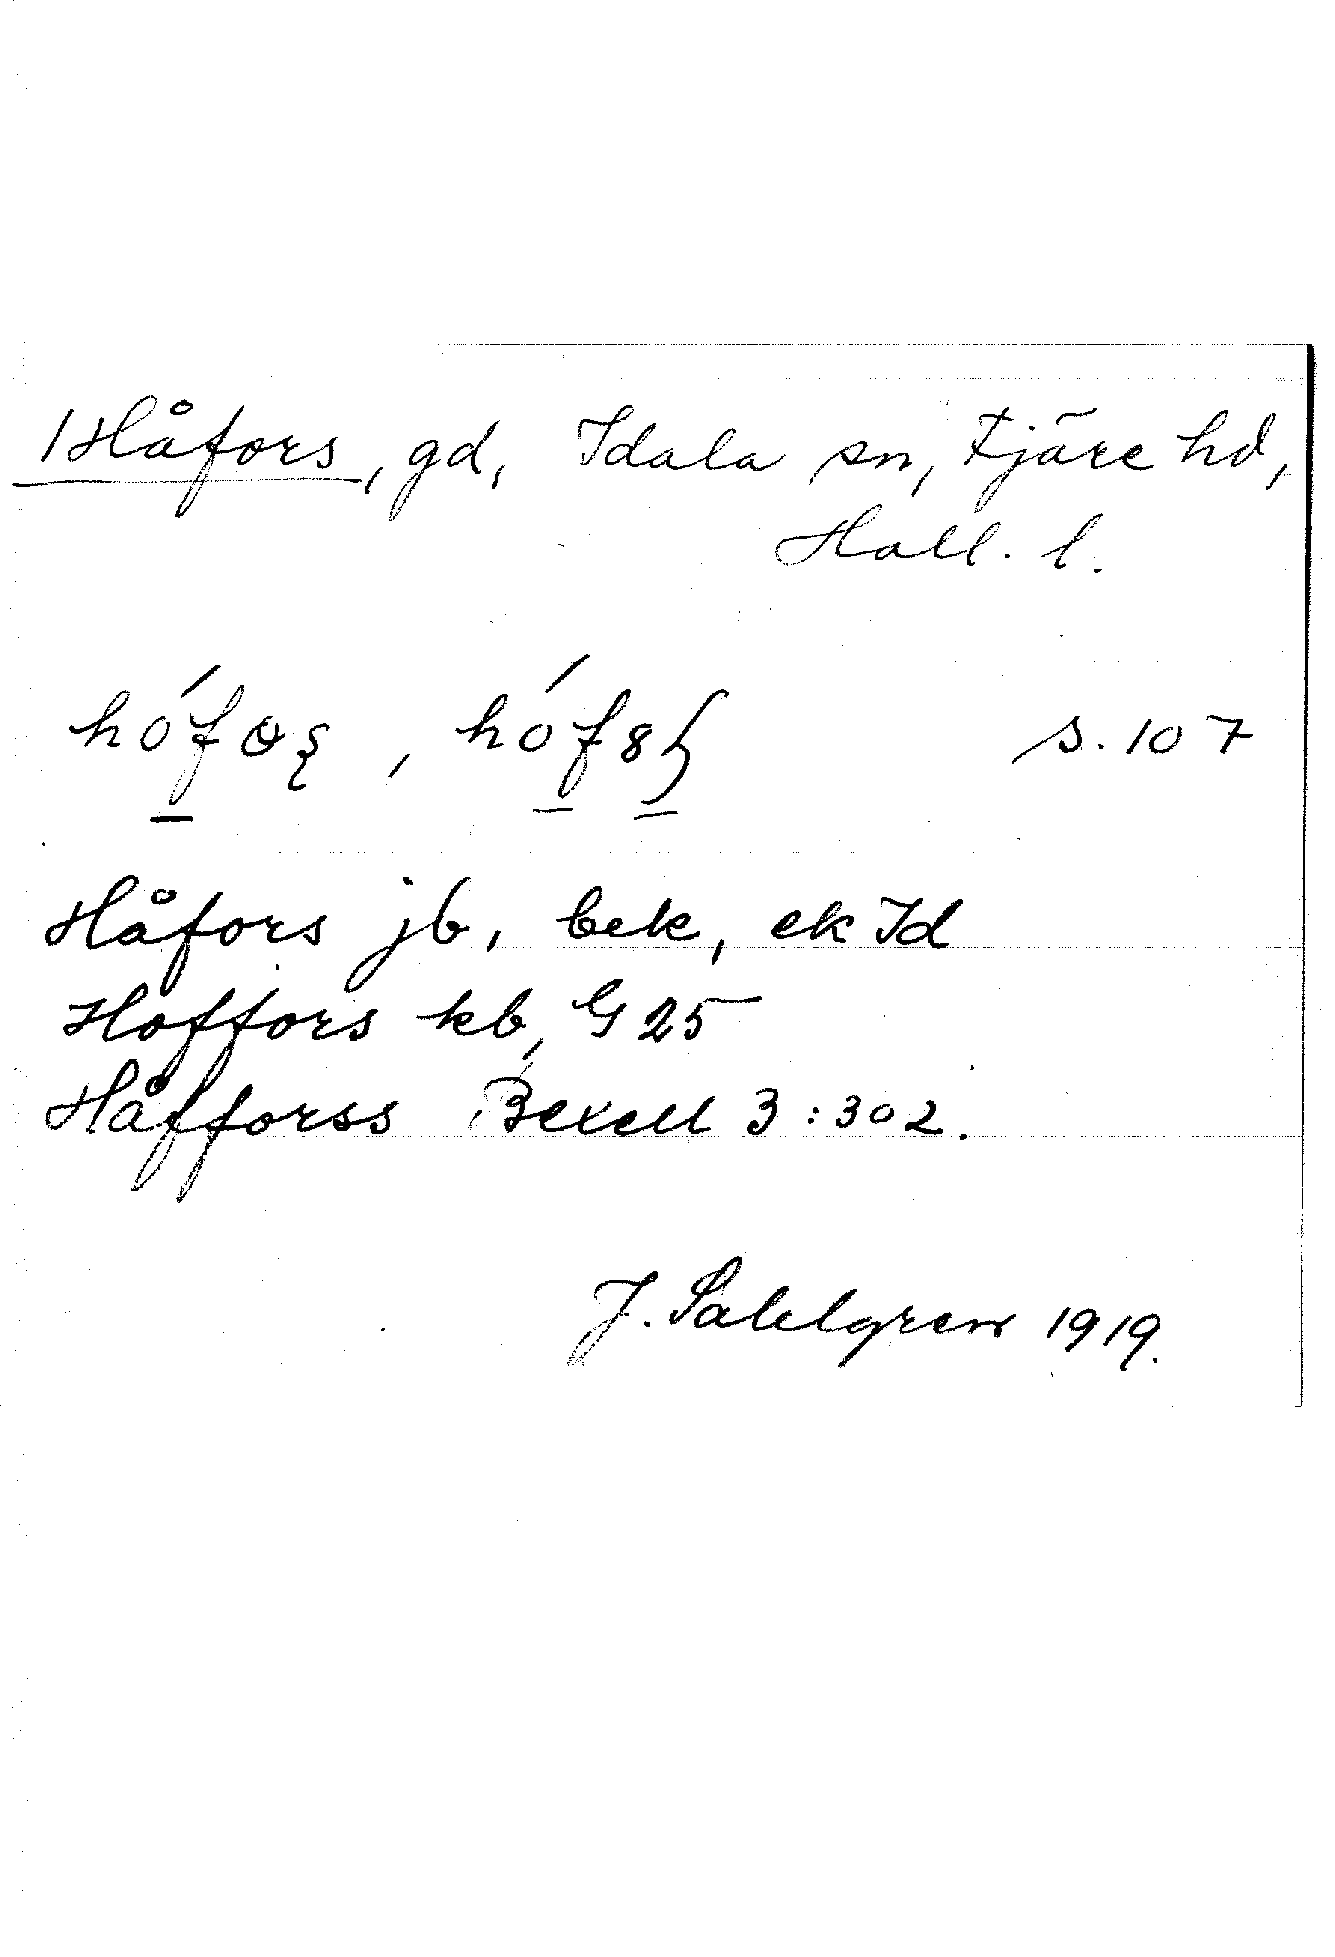 Håfors, gd, Idala sn, Fjäre hd,
Hall. l.
s. 107
Håfors jb, bek, ek Id
Hoffors kb, G 25
Håfforss Bexell 3:302.
J. Sahlgren 1919.